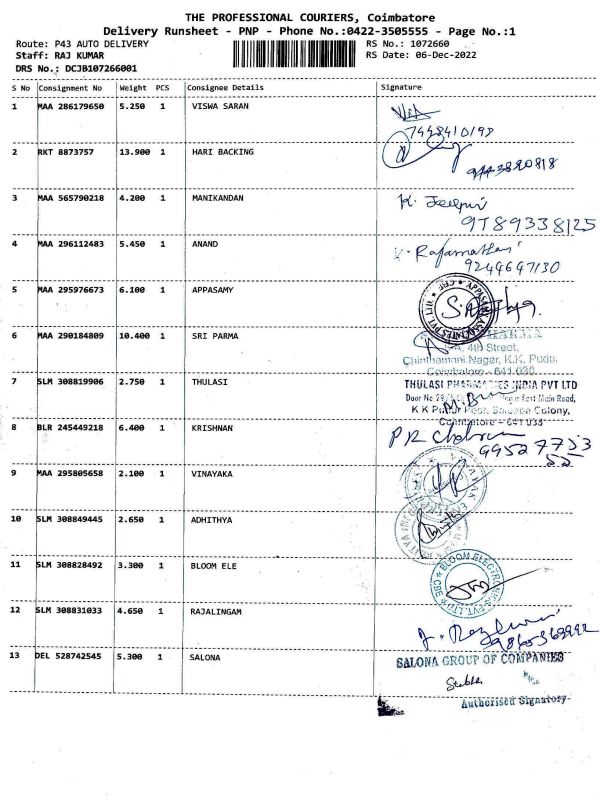 THE PROFESSIONAL COURIERS, Coimbatore
Delivery Runsheet - PNP - Phone No.:0422-3505555 - Page No.:1
Route: P43 AUTO DELIVERY RS No.: 1072660
Staff: RAJ KUMAR RS Date: 06-Dec-2022
DRS No.: DCJB107266001
S No Consignment No Weight PCS Consignee Details Signature
1 MAA 286179650 5.250 1 VISWA SARAN
7448410198
2 RKT 8873757 13.900 1 HARI BACKING
3 MAA 565790218 4.200 1 MANIKANDAN
9789338125
4 MAA 296112483 5.450 1 ANAND
9244647130
5 MAA 295976673 6.100 1 APPASAMY
6 MAA 290184809 10.400 1 SRI PARMA
4th Street,
Chinthamani Nagar, K.K. Pudur
Coimbatore - 641 038
7 SLM 308819906 2.750 1 THULASI
THULASI PHARMACIES INDIA PVT LTD
East Main Road,
Colony,
Coimbatore
8 BLR 245449218 6.400 1 KRISHNAN
9 MAA 295805658 2.100 1 VINAYAKA
10 SLM 308849445 2.650 1 ADHITHYA
11 SLM 308828492 3.300 1 BLOOM ELE
BLOOM ELECTRONICS PVT.LTD CBE
12 SLM 308831033 4.650 1 RAJALINGAM
13 DEL 528742545 5.300 1 SALONA
SALONA GROUP OF COMPANIES
Authorised Signatory